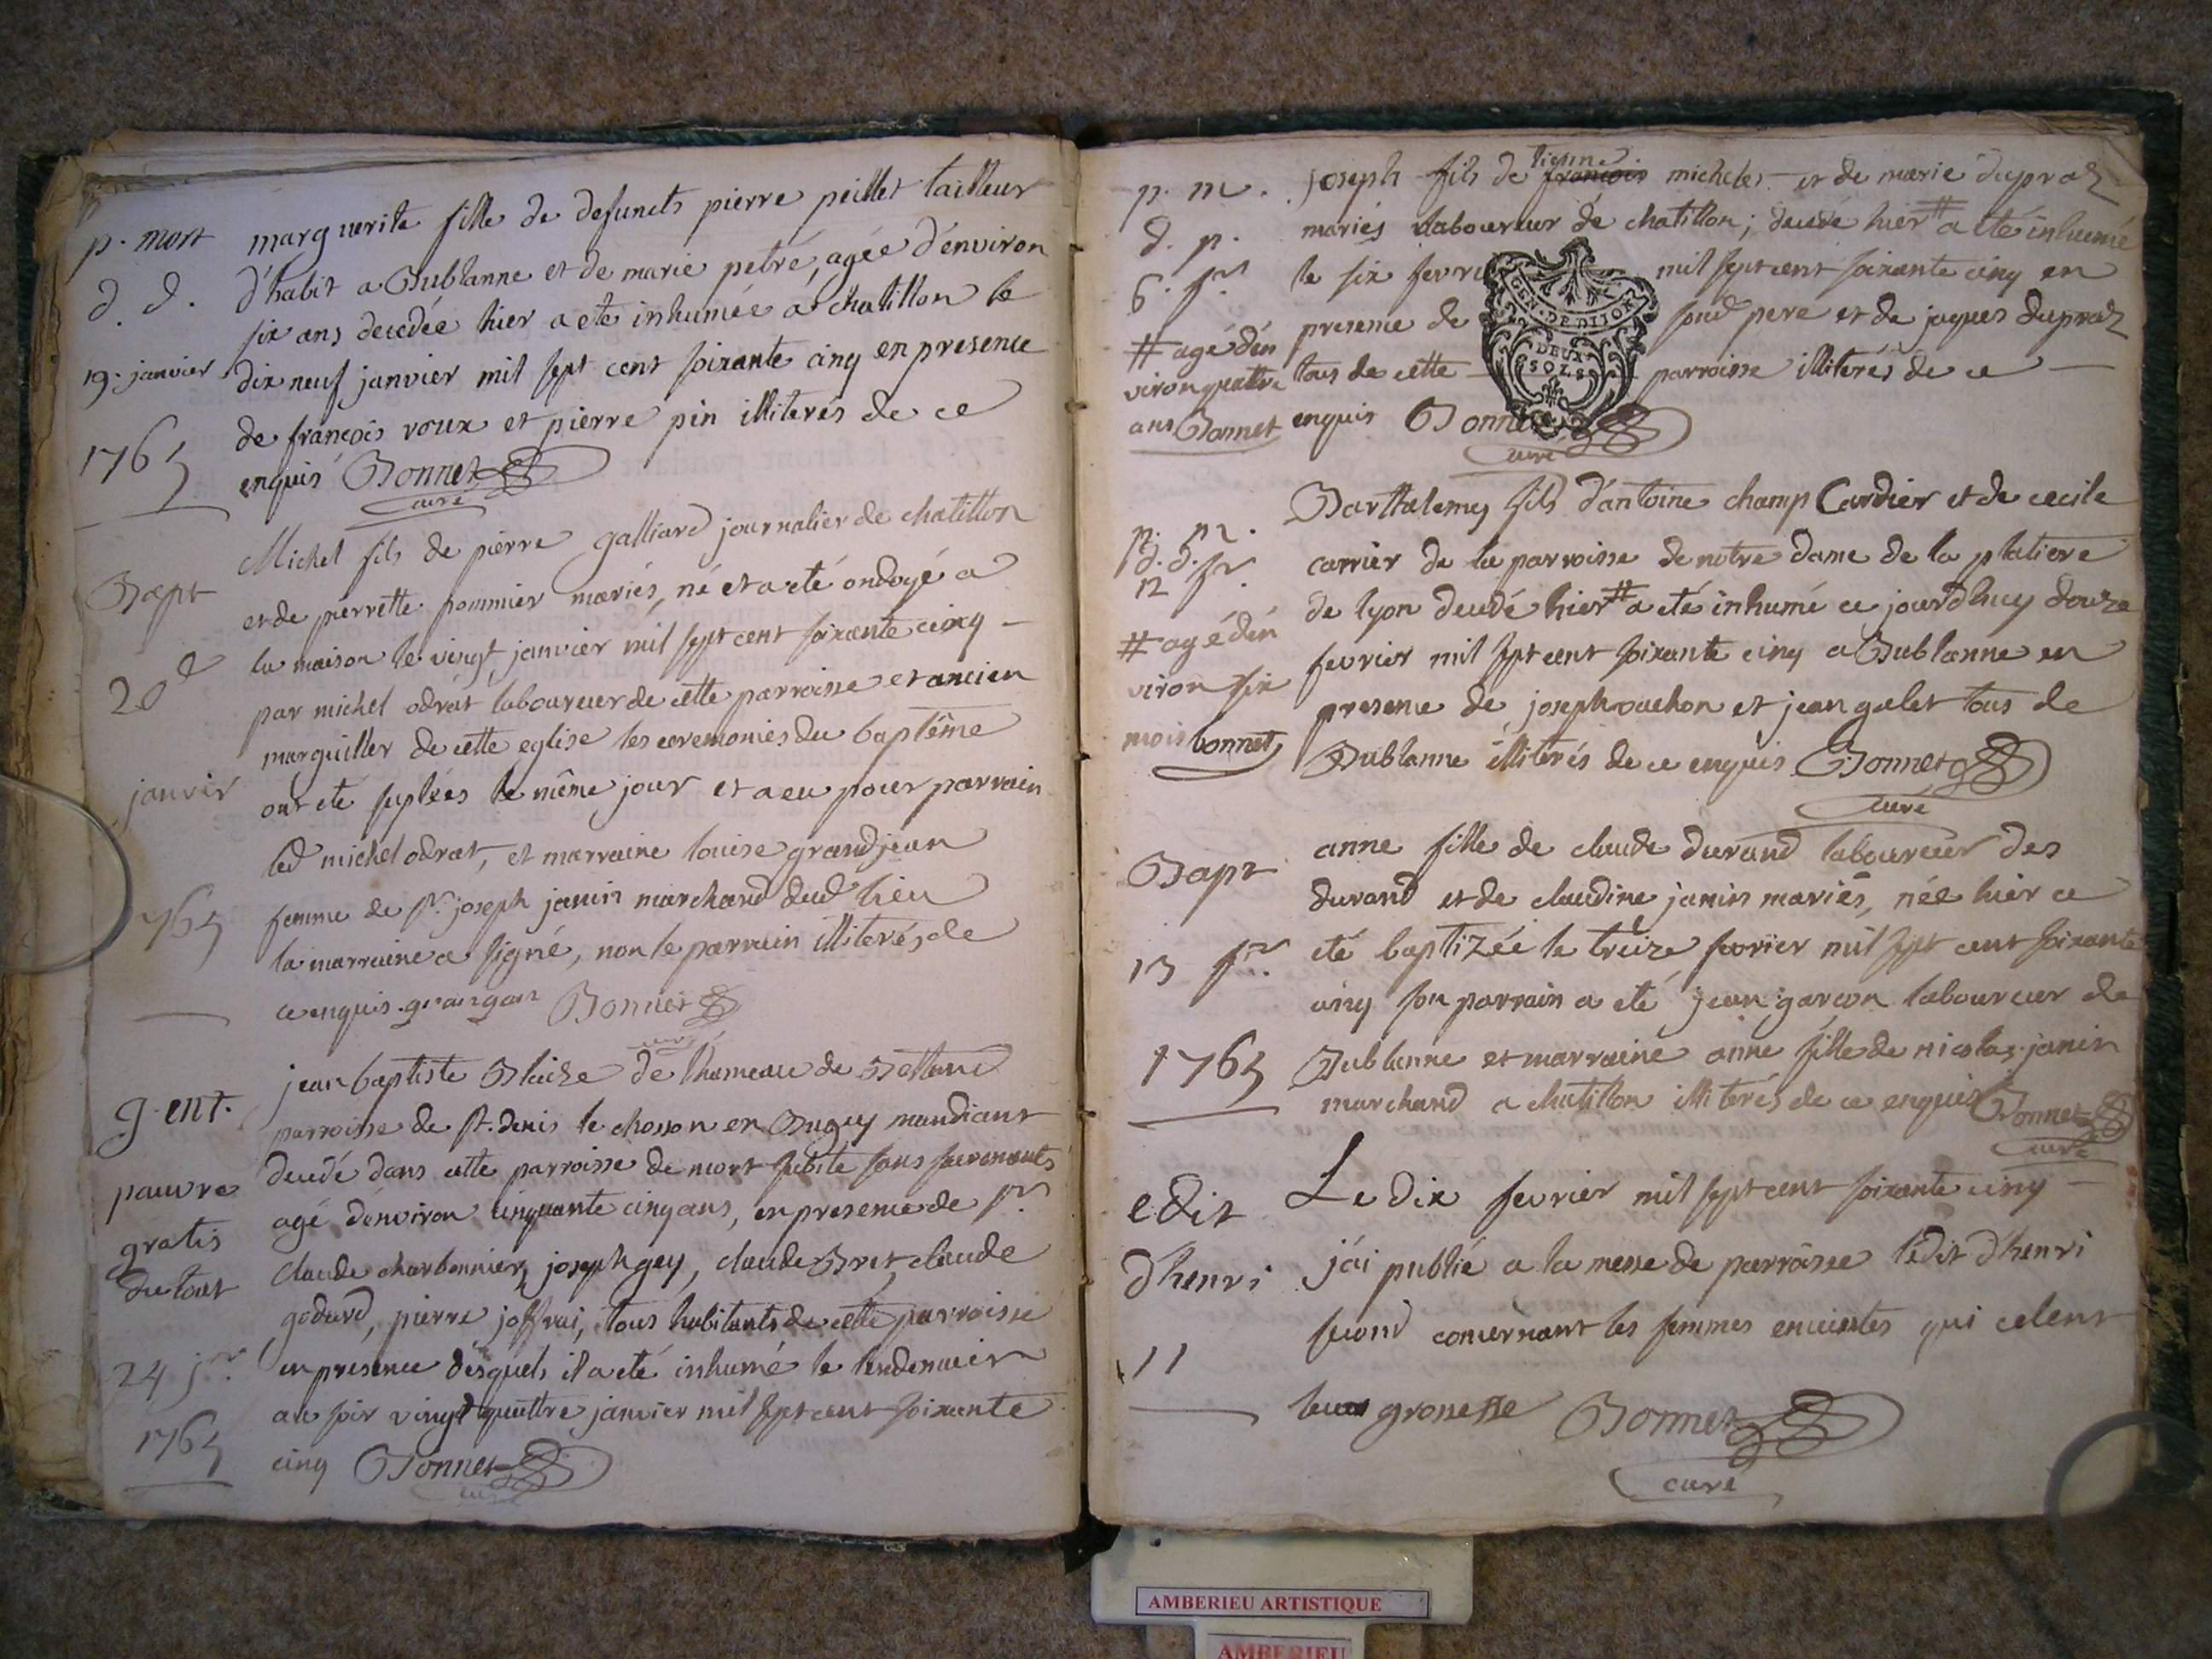 p. mort
d. d.
19. janvier
1765
marguerite fille de defuncts pierre peillet tailleur
d'habit a Dublanne et de marie petré, agée d'environ
six ans decedée hier a eté inhumée a chatillon le
dix neuf janvier mil sept cent soixante cinq en presence
de françois roux et pierre pin illiterés de ce
enquis Bonnet
curé
Bapt
20e
janvir
1765
Michel fils de pierre galliard journalier de chatillon
et de pierrette pommier mariés, né et a eté ondoyé a
la maison le vingt janvier mil sept cent soixante cinq
par michel odrat laboureur de cette parroisse et ancien
marguiller de cette eglise les ceremonies du baptême
ont eté suplées le même jour et a eu pour parrain
led michel odrat, et marraine louise grandjean
femme de sr. joseph janin marchand dud lieu
la marraine a signé, non le parrain illiterés de
ce enquis. grangan Bonnet
curé
g. ent.
pauvre
gratis
du tout
24 jer
1765
jean baptiste Blaise de l'hameau de
parroisse de st. denis le chosson en Bugey mandiant
decedé dans cette parroisse de mort subite sans sacremants
agé d'environ cinquante cinq ans, en presence de sr.
claude charbonnier, joseph gey, claude Bret, claude
godard, pierre joffrai, tous habitants de cette parroisse
en présence desquels il a eté inhumé le lendemain
au soir vingt quattre janvier mil sept cent soixante
cinq Bonnet
curé
p. m.
d. p.
6. fr.
# agé d'en
viron quattre
ans Bonnet
tienne
joseph fils de françois michelet et de marie dupraz
mariés laboureur de chatillon; decedé hier # a eté inhumé
le six fevri mil sept cent soixante cinq en
presence de sond pere et de jaques dupraz
tous de cette parroisse illiterés de ce
enquis Bonnet
curé
GEN. DE DIJON
DEUX
SOLS
p. m.
d. d.
12 fr.
# agé d'en
viron six
mois bonnet
Barthelemy fils d'antoine champ Cardier et de cecile
carrier de la parroisse de notre dame de la platiere
de lyon decedé hier # a eté inhumé ce jourd'huy douze
fevrier mil sept cent soixante cinq a Dublanne en
presence de joseph vachon et jean galet tous de
Dublanne illiterés de ce enquis Bonnet
curé
Bapt
13 fr.
1765
anne fille de claude durand laboureur des
durand et de claudine janin mariés, née hier a
eté baptizée le treize fevrier mil sept cent soixante
cinq son parrain a eté jean garçon laboureur de
Dublanne et marraine anne fille de nicolas janin
marchand a chatillon illiterés de ce enquis Bonnet
curé
edit
d'henri
11
Le dix fevrier mil sept cent soixante cinq
j'ai publié a la messe de parroisse l'edit d'henri
second concernant les femmes enceintes qui celent
leur grossesse Bonnet
curé
AMBERIEU ARTISTIQUE
AMBERIEU